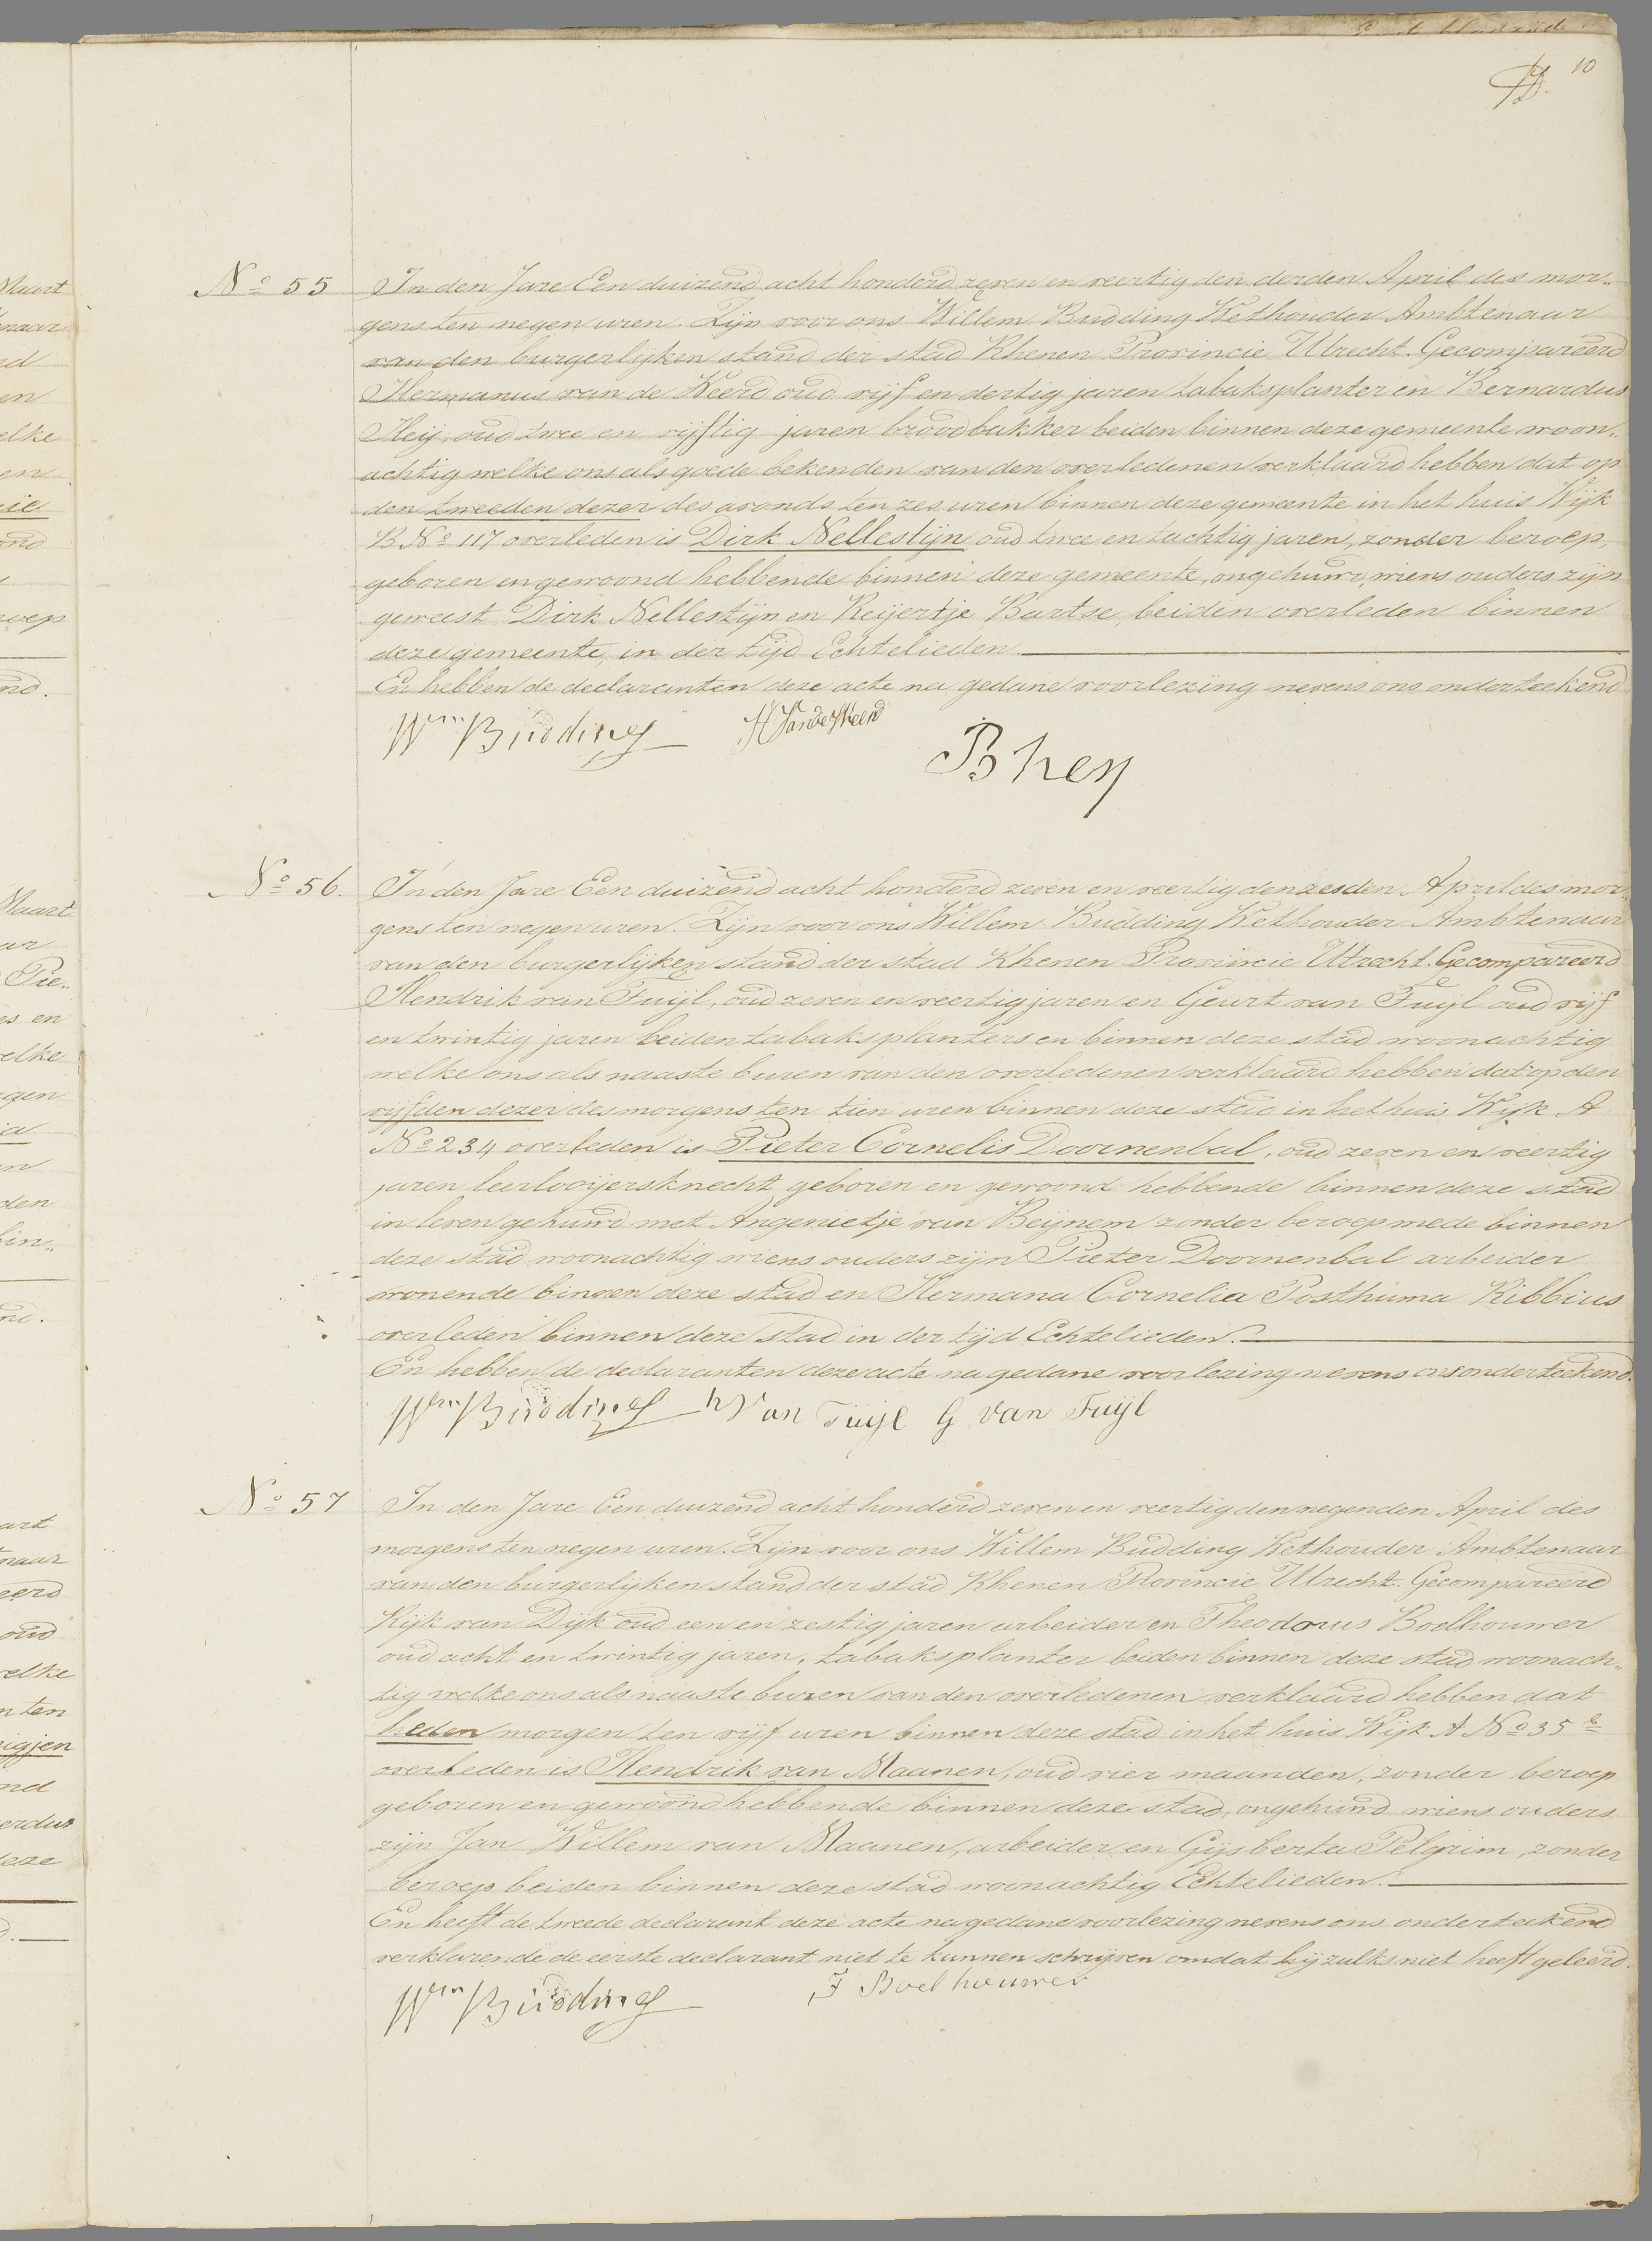 10
No 55
In den Jare Een duizend acht honderd zeven en veertig den derden April des mor„
gens ten negen uren. Zijn voor ons Willem Budding Wethouder Ambtenaar
van den burgerlijken stand der stad Rhenen Provincie Utrecht. Gecompareerd
Hermanus van de Weerd oud vijf en dertig jaren tabaksplanter en Bernardus
Heij, oud twee en vijftig jaren broodbakker beiden binnen deze gemeente woon„
achtig welke ons als goede bekenden van den overledenen verklaard hebben dat op
den tweeden dezer des avonds ten zes uren binnen deze gemeente in het huis Wijk
B No 117 overleden is Dirk Nellestijn, oud twee en tachtig jaren, zonder beroep,
geboren en gewoond hebbende binnen deze gemeente, ongehuwd, wiens ouders zijn
geweest Dirk Nellestijn en Reijertje Bartse, beiden overleden binnen
deze gemeente, in der tijd Echtelieden.
En hebben de declaranten deze acte na gedane voorlezing nevens ons onderteekend
Wm Budding H Van de Weerd
B heij
No 56.
In den Jare Een duizend acht honderd zeven en veertig den zesden April des mor„
gens ten negen uren. Zijn voor ons Willem Budding Wethouder Ambtenaar
van den burgerlijken stand der stad Rhenen Provincie Utrecht. Gecompareerd
Hendrik van Tuijl, oud zeven en veertig jaren en Geurt van Tuijl oud vijf
en twintig jaren beiden tabaksplanters en binnen deze stad woonachtig
welke ons als naaste buren van den overledenen verklaard hebben dat op den
vijfden dezer des morgens ten tien uren binnen deze stad in het huis Wijk A
No 234 overleden is Pieter Cornelis Doornenbal, oud zeven en veertig
jaren leerlooijersknecht geboren en gewoond hebbende binnen deze stad
in leven gehuwd met Angenietje van Beijnem zonder beroep mede binnen
deze stad woonachtig wiens ouders zijn Pieter Doornenbal arbeider
wonende binnen deze stad en Hermana Cornelia Posthuma Kibbius
overleden binnen deze stad in der tijd Echtelieden.
En hebben de declaranten deze acte na gedane voorlezing nevens ons onderteekend.
Wm Budding h Van Tuijl G van Tuijl
No 57
In den Jare Een duizend acht honderd zeven en veertig den negenden April des
morgens ten negen uren. Zijn voor ons Willem Budding Wethouder Ambtenaar
van den burgerlijken stand der stad Rhenen Provincie Utrecht. Gecompareerd
Rijk van Dijk oud een en zestig jaren arbeider en Theodorus Boelhouwer
oud acht en twintig jaren, tabaksplanter beiden binnen deze stad woonach„
tig welke ons als naaste buren van den overledenen verklaard hebben dat
heden morgen ten vijf uren binnen deze stad in het huis Wijk A No 35 b
overleden is Hendrik van Maanen, oud vier maanden, zonder beroep
geboren en gewoond hebbende binnen deze stad, ongehuwd wiens ouders
zijn Jan Willem van Maanen, arbeider en Gijsberta Pelgrim, zonder
beroep beiden binnen deze stad woonachtig Echtelieden.
En heeft de tweede declarant deze acte na gedane voorlezing nevens ons onderteekend
verklarende de eerste declarant niet te kunnen schrijven omdat hij zulks niet heeft geleerd.
Wm Budding T Boelhouwer